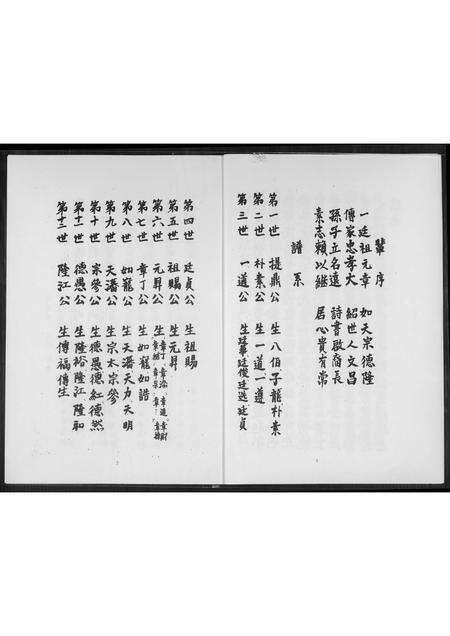 輩序
一廷祖元章 如天宗德隆
傳家忠孝大 紹世人文昌
孫子立名遠 詩書啟裔長
素志賴以繼 居心貴有常
譜系
第一世 提鼎公 生八伯子龍朴素
第二世 朴素公 生一道一遵
第三世 一道公 生廷華廷俊廷選廷貞
第四世 廷貞公 生祖賜
第五世 祖賜公 生元昇
第六世 元昇公 生章丁
第七世 章丁公 生如寵如諧
第八世 如寵公 生天潘天力天明
第九世 天潘公 生宗本宗參
第十世 宗參公 生德愚德紅德然
第十一世 德愚公 生隆裕隆江隆和
第十二世 隆江公 生傳福傳生